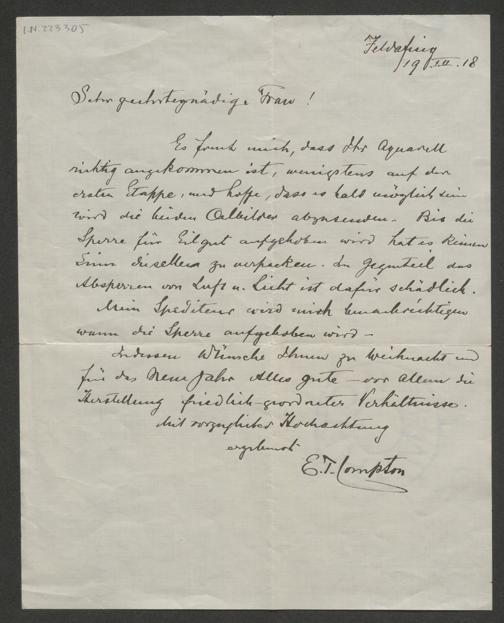 I.N. 223305
Feldafing
19 XII. 18
Sehr geehrte gnädige Frau!
Es freut mich, dass Ihr Aquarell
richtig angekommen ist, wenigstens auf der
ersten Etappe, und hoffe, dass es bald möglich sein
wird die beiden Oelbilder abzusenden. Bis die
Sperre für Eilgut aufgehoben wird hat es keinen
Sinn dieselben zu verpacken. Im Gegenteil das
Absperren von Luft u. Licht ist dafür schädlich.
Mein Spediteur wird mich benachrichtigen
wann die Sperre aufgehoben wird –
Indessen wünsche Ihnen zu Weihnacht und
für das Neue Jahr Alles gute – vor allem die
Herstellung friedlich-geordneter Verhältnisse.
Mit vorzüglicher Hochachtung
ergebenst
E.T. Compton